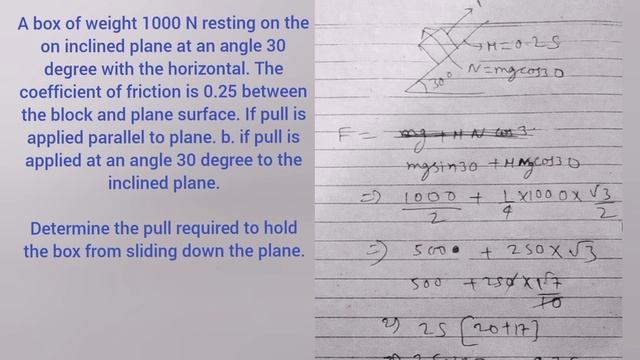 A box of weight 1000 N resting on the
on inclined plane at an angle 30
degree with the horizontal. The
coefficient of friction is 0.25 between
the block and plane surface. If pull is
applied parallel to plane. b. if pull is
applied at an angle 30 degree to the
inclined plane.
Determine the pull required to hold
the box from sliding down the plane.
→ M=0.25
30° N=mgcos30
F = mg + M N cos 3
mgsin30 + MMgcos30
⇒ 1000/2 + 1/4 × 1000 × √3/2
⇒ 500 + 250 × √3
500 + 250 × 17/10
25 [20+17]